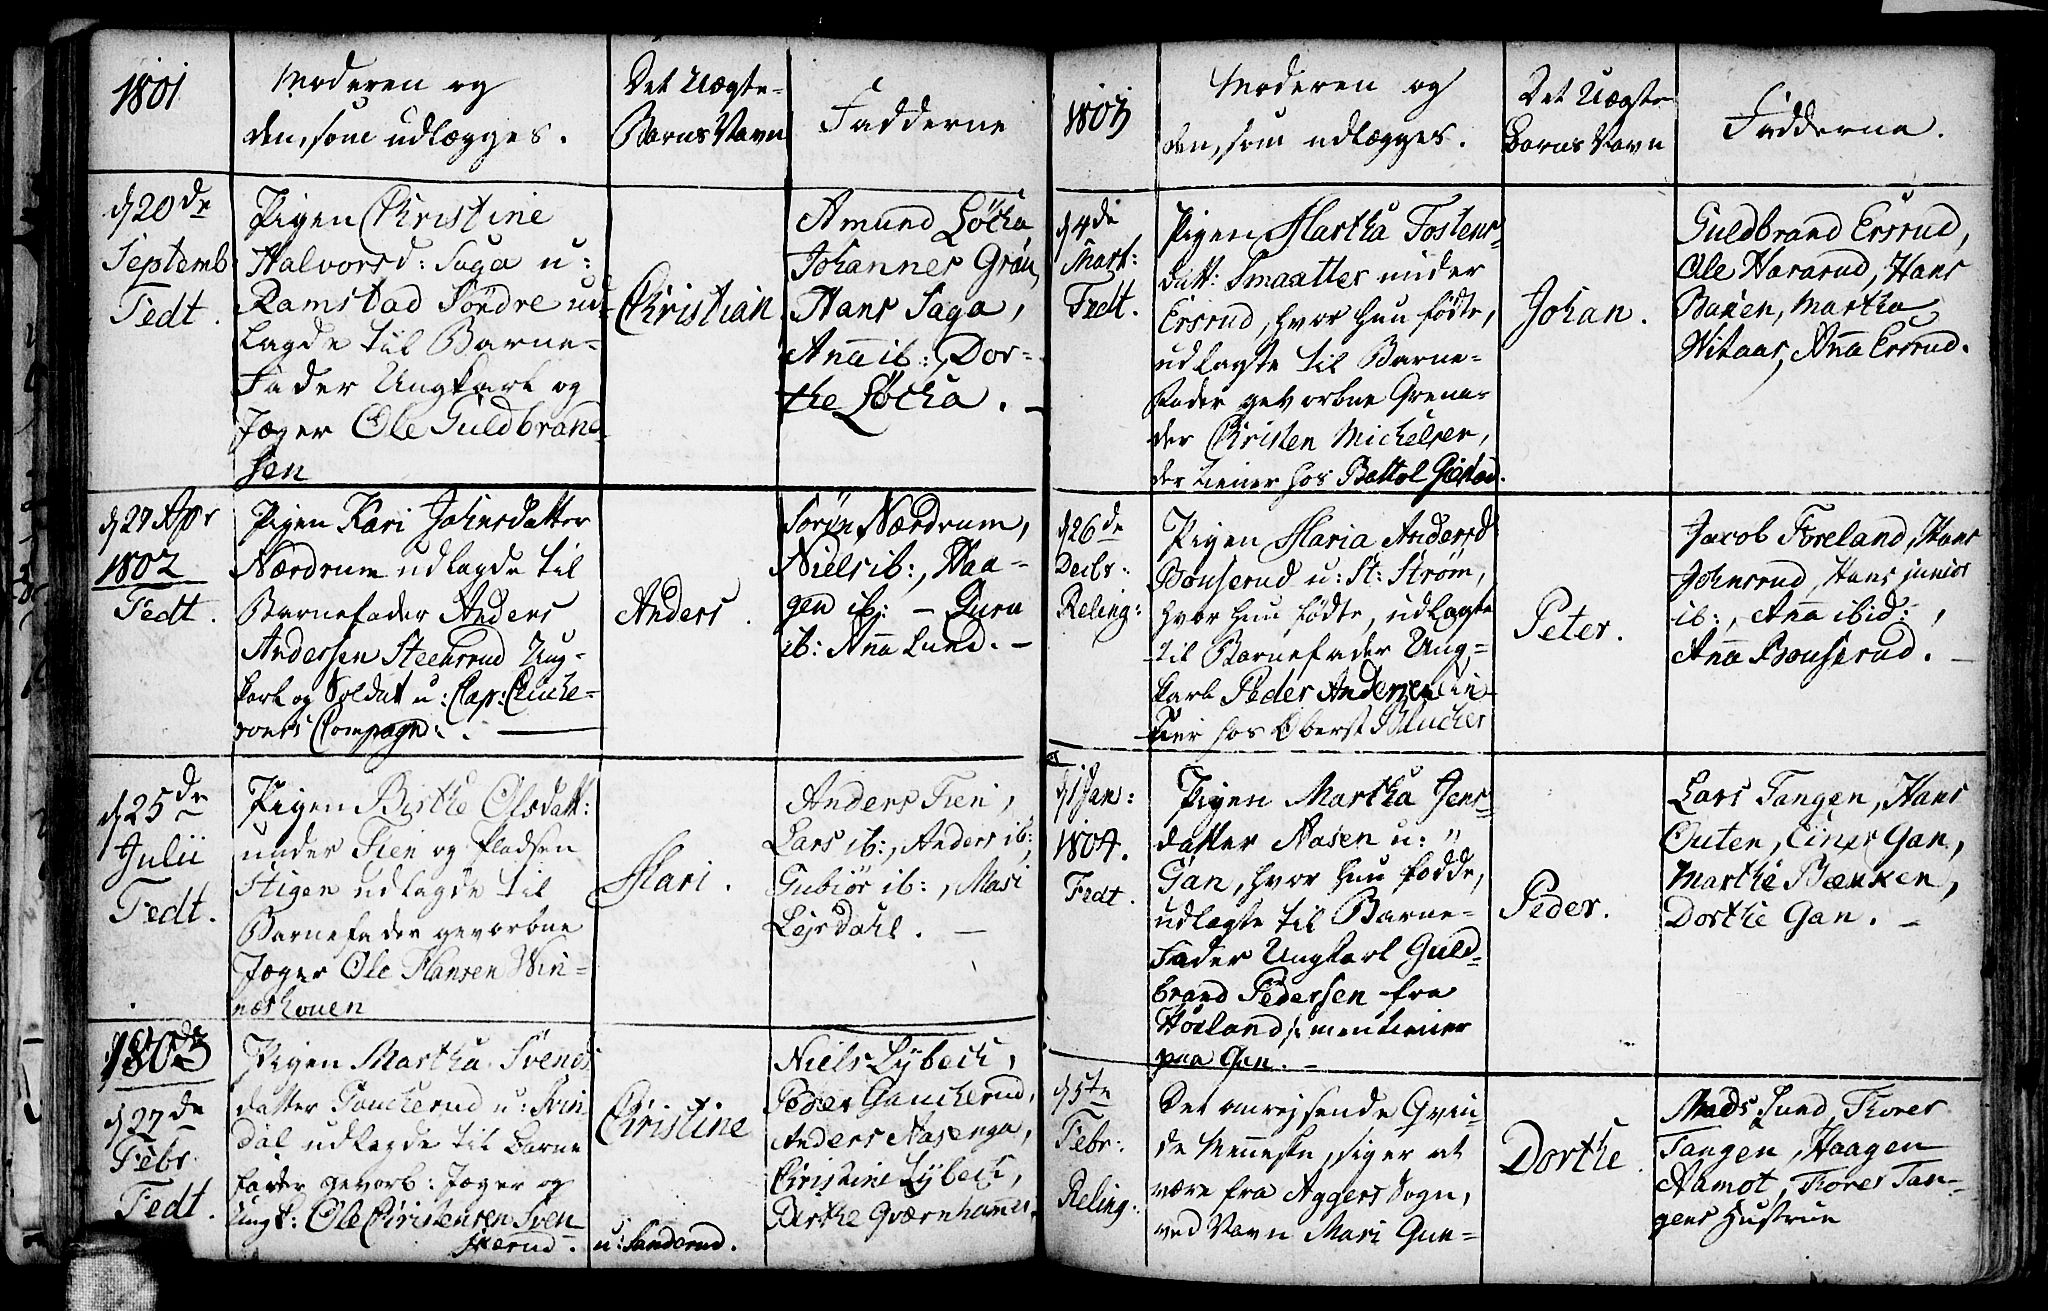 1801
Moderen og
den, som udlægges.
Det Uægte
Barns Navn
Fadderne
d 20de
Septemb
Fedt.
Pigen Christine
Halvorsd: Saga u:
Ramstad Søndre ud-
lagde til Barne-
Fader Ungkarl og
Jæger Ole Guldbrand-
sen
Christian
Amund Løcka
Johannes Grau,
Hans Saga,
Anna ib:, Dor-
the Løcka. -
d 27 Apr
1802
Fedt.
Pigen Kari Johnsdatter
Nærdrum udlagde til
Barnefader Anders
Andersen Steensrud Ung-
karl og Soldat u: Cap:
Compagn:.
Anders.
Søren Nærdrum,
Niels ib:, Haa-
gen ib: - Guru
ib: Anna Lund. -
d 25de
Julii
Fedt.
Pigen Birthe Olsdatt:
under Tien og Pladsen
Stigen udlagde til
Barnefader gevorbne
Jæger Ole Hansen Win-
neskouen
Mari.
Anders Tien,
Lars ib:, Anders ib:,
Gubiør ib:, Mari
Lejrdahl. -
1803
d 27de
Febr
Fedt.
Pigen Martha Svends
datter Gauckerud u: Svin
dal udlagde til Barne
fader gevorb: Jæger og
Ungk: Ole Christensen Sven
skerud.
Christine
u: Sanderud.
Niels Lybeck,
Peder Gauckerud,
Anders Aasenga,
Christine Lybeck,
Birthe Qværnhammer.
1803
Moderen og
den, som udlægges.
Det Uægte
Barns Navn
Fadderne.
d 4de
Mart:
Fedt.
Pigen Martha Tostens-
datt: Smaatter under
Ersrud, hvor hun fødte,
udlagte til Barne-
Fader gevorbne Grena-
der Christen Michelsen,
der tiener hos Battol
Johan.
Guldbrand Ersrud,
Ole Hararud, Hans
Baxen, Martha
Witaas, Anna Ersrud.
d 26de
Decbr:
Reling:
Pigen Maria Andersd
Bonserud u: St: Strøm,
hvor hun fødte, udlagte
til Barnefader Ung-
karl Peder Andersen
tier hos Oberst Blucher
Peter.
Jacob Foreland, Hans
Johnsrud, Hans junior
ib:, Anna ibid:,
Anna Bonserud. -
d 1 Jan:
1804.
Fedt.
Pigen Martha Jens-
datter Aasen u: "
Gan, hvor hun fødde,
udlagte til Barne-
Fader Ungkarl Guld-
brand Pedersen fra
Høland, men tiener
paa Gan. -
Peder.
Lars Tangen, Hans
Outen, Einer Gan,
Marthe Bækken,
Dorthe Gan. -
d 5te
Febr:
Reling:
Det omrejsende Qvin-
de Menneske, siger at
være fra Aggers Sogn,
ved Navn Mari Gun-
Dorthe.
Mads Lund, Thorer
Tangen, Haagen
Aamot, Thorer Tan-
gens Hustrue